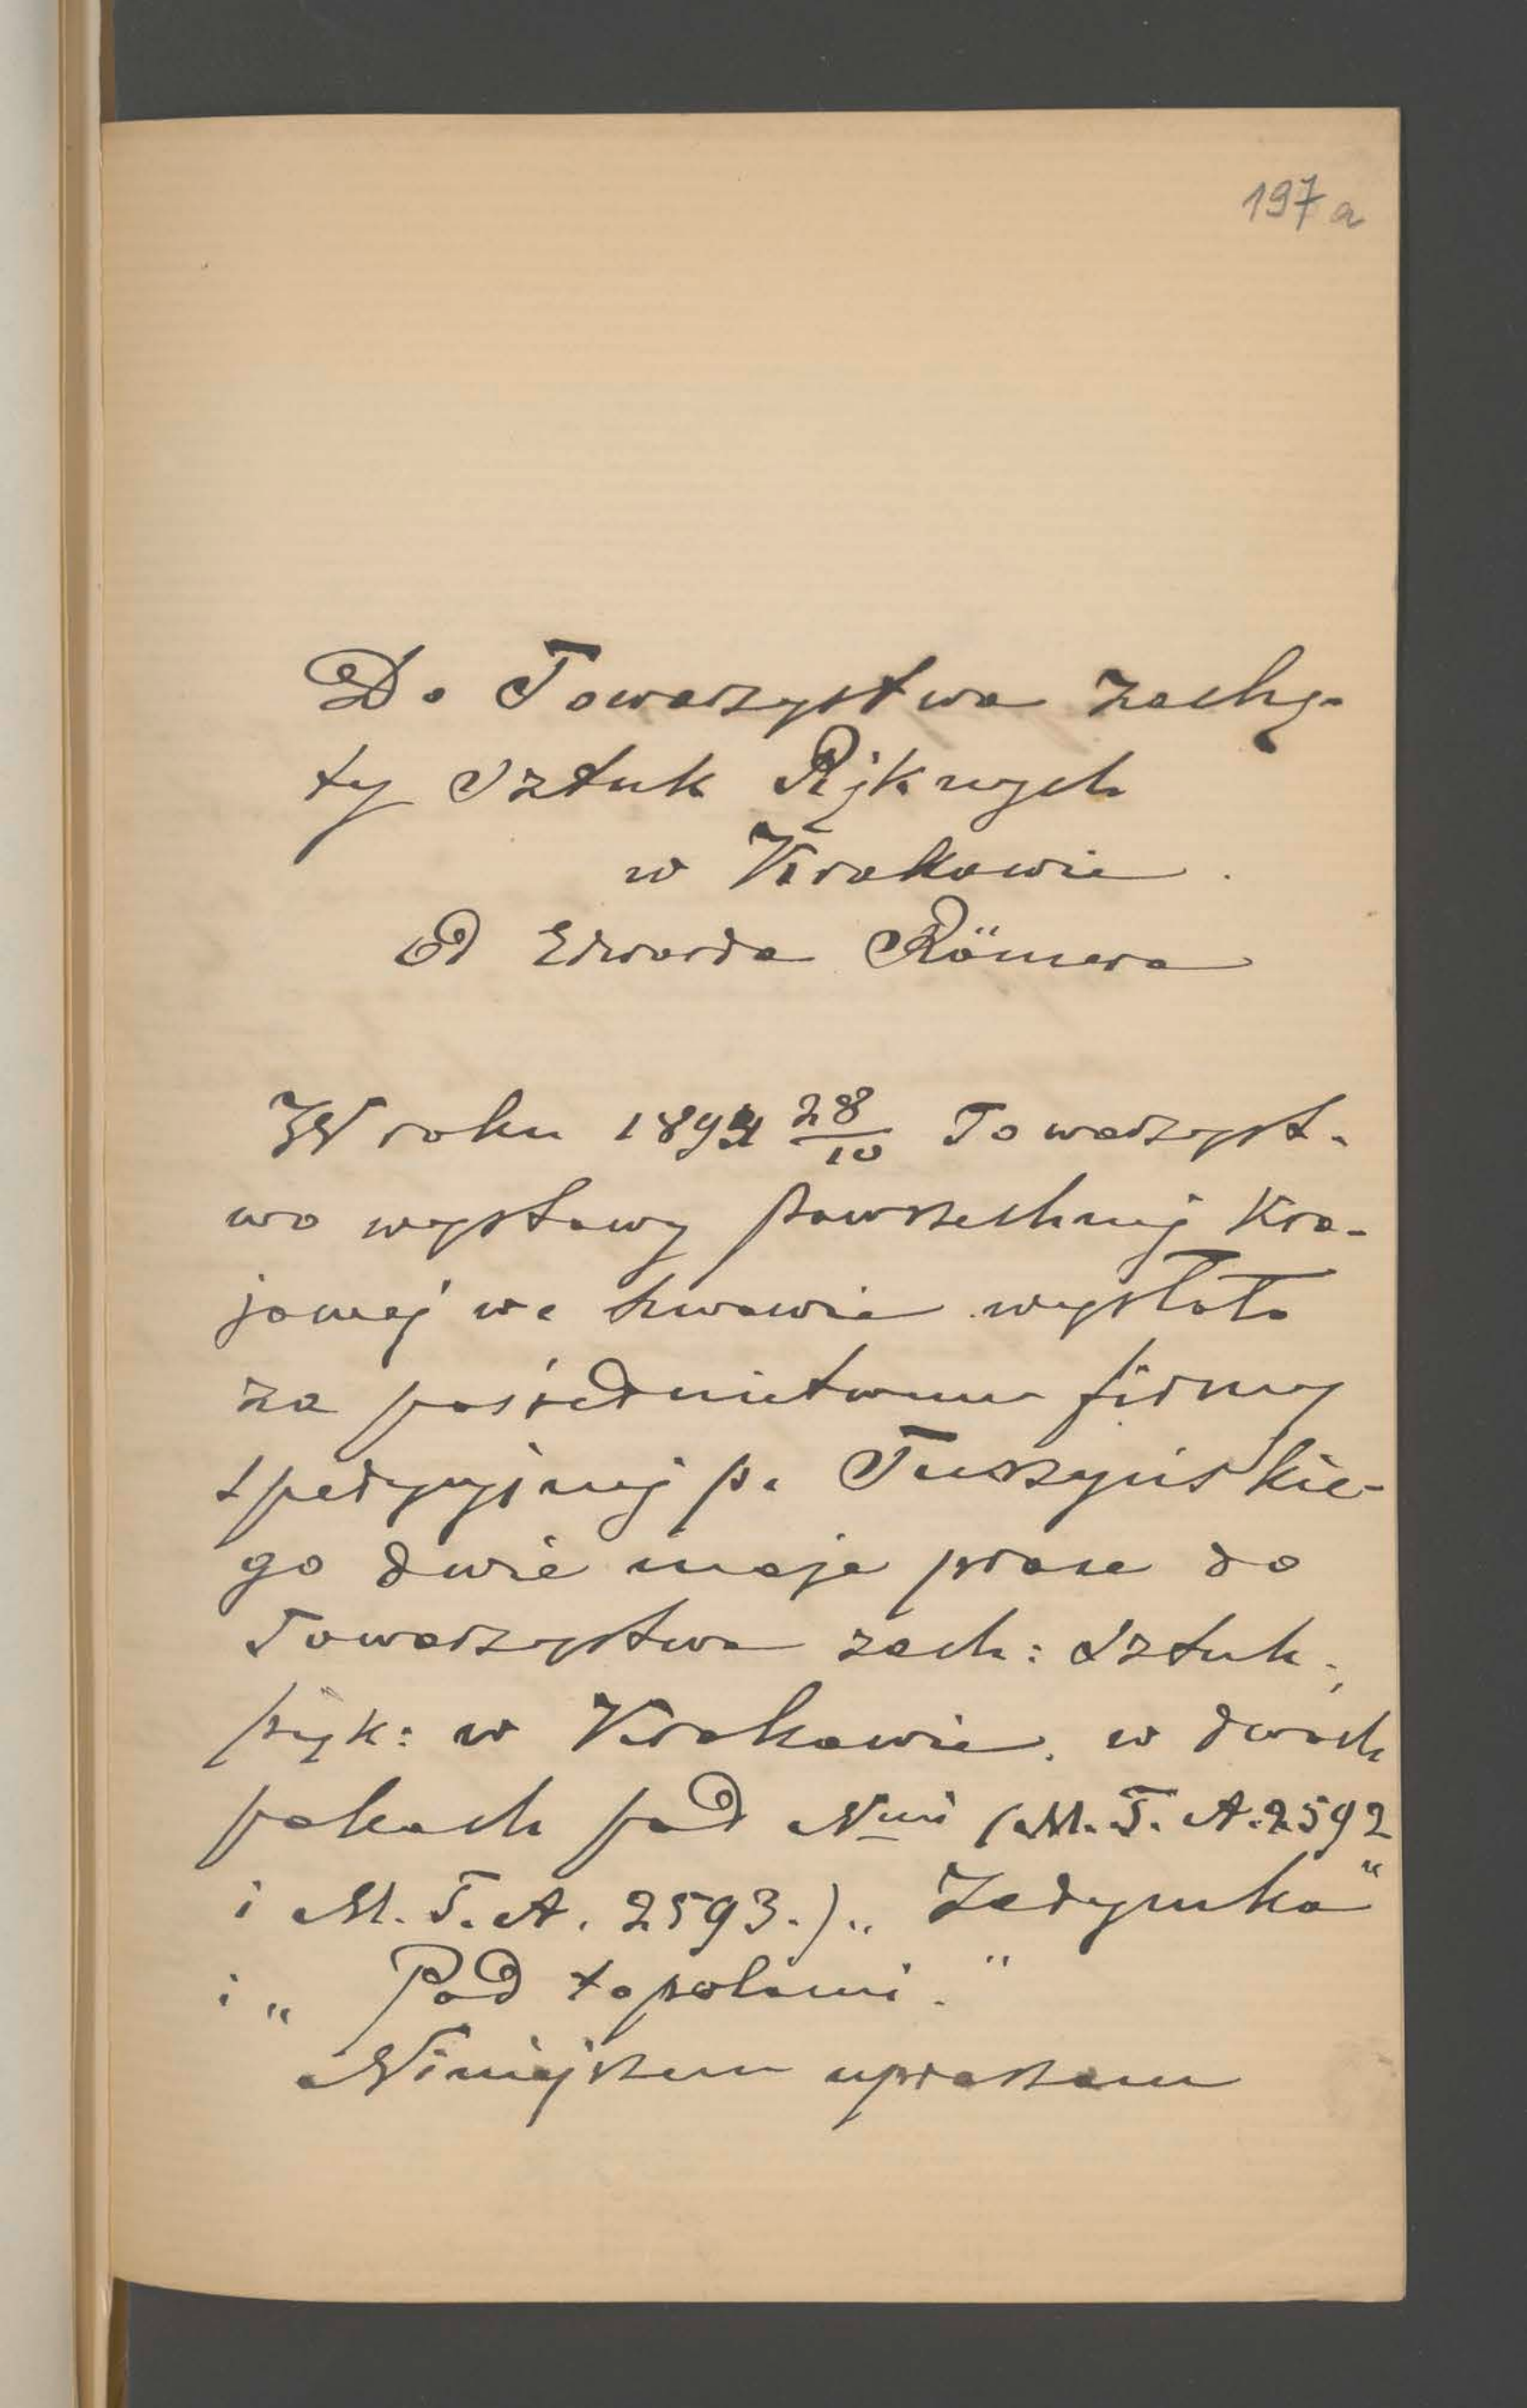 197 a
Do Towarzystwa Zachę-
ty Sztuk Pięknych
w Krakowie.
Od Edwarda Römera
W roku 1894 28/10 Towarzyst-
wo wystawy powszechnej Kra-
jowej we Lwowie wysłało
za pośrednictwem firmy
spedycyjnej p. Tuszyńskie-
go dwie moje prace do
Towarzystwa zach: Sztuk.
pięk: w Krakowie. w dwóch
pakach pod Nmi (M. T. A. 2592
i M. T. A. 2593.) „Jedynka"
i „Pod topolami."
Niniejszem upraszam